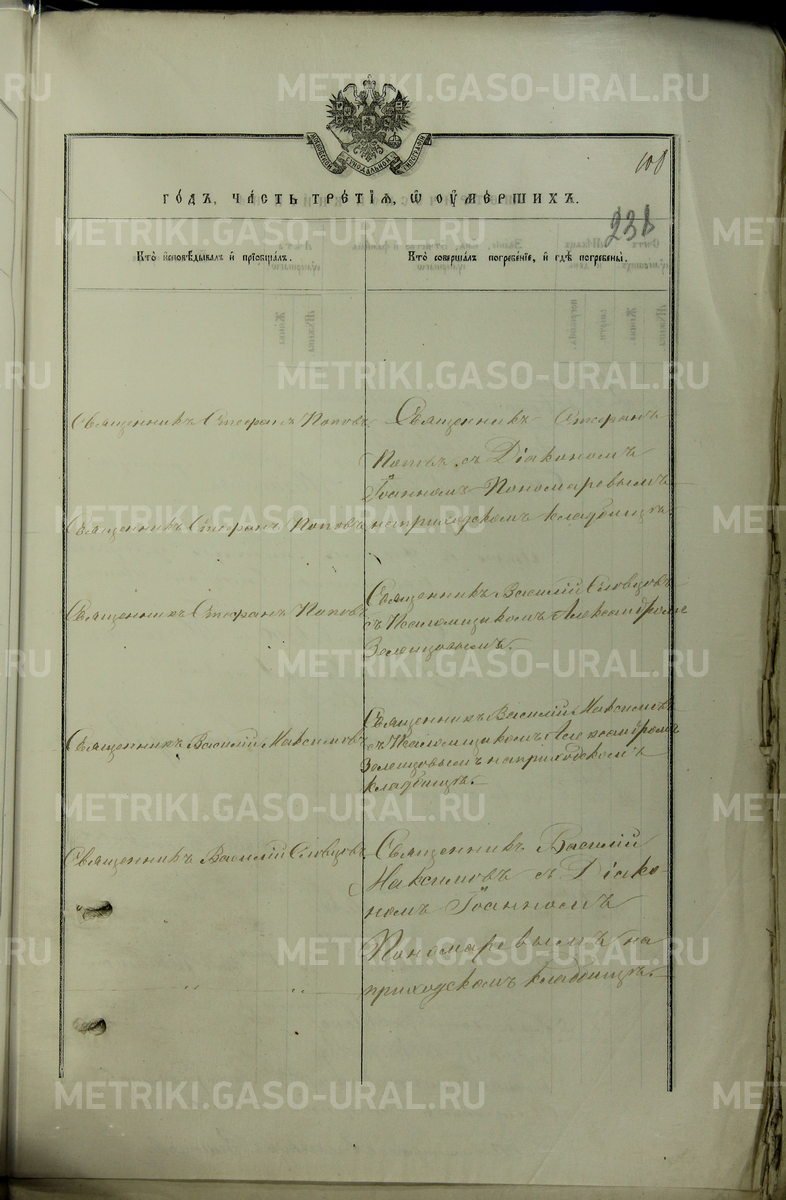 METRIKI.GASO-URAL.RU
МОСКОВСКОЙ СѴНОДАЛЬНОЙ ТИПОГРАФІИ
108
ГОДЪ, ЧАСТЬ ТРЕТІѦ, Ѡ ОУМЕРШИХЪ.
231
Кто исповѣдывалъ и пріобщалъ.
Кто совершалъ погребеніе, и гдѣ погребены.
Священникъ Стефанъ Поповъ
Священникъ Стефанъ
Поповъ съ Діакономъ
Іоанномъ Пономаревымъ
Священникъ Стефанъ Поповъ
на приходскомъ кладбищѣ.
Священникъ Стефанъ Поповъ
Священникъ Василій Словцовъ
съ Псаломщикомъ Александромъ
Зеленцовымъ.
Священникъ Василій Максимовъ
Священникъ Василій Максимовъ
съ Псаломщикомъ Александромъ
Зеленцовымъ на приходскомъ
кладбищѣ.
Священникъ Василій Словцовъ
Священникъ Василій
Максимовъ съ Діако-
номъ Іоанномъ
Пономаревымъ на
приходскомъ кладбищѣ.
" "